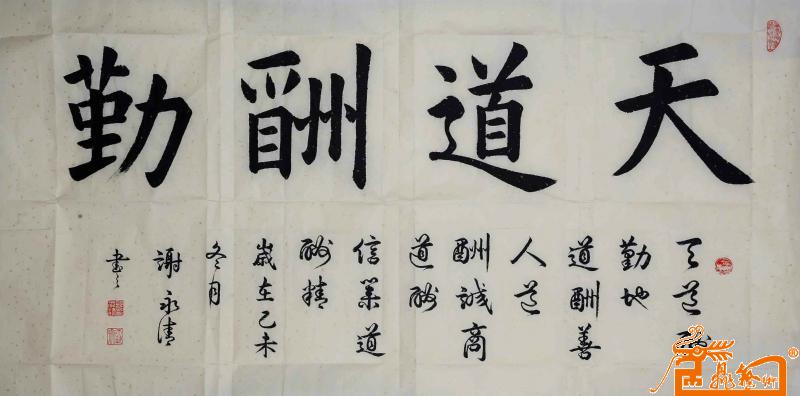 天道酬勤
天道酬
勤地
道酬善
人道
酬誠商
道酬
信業道
酬精
歲在乙未
冬月
謝永清
書